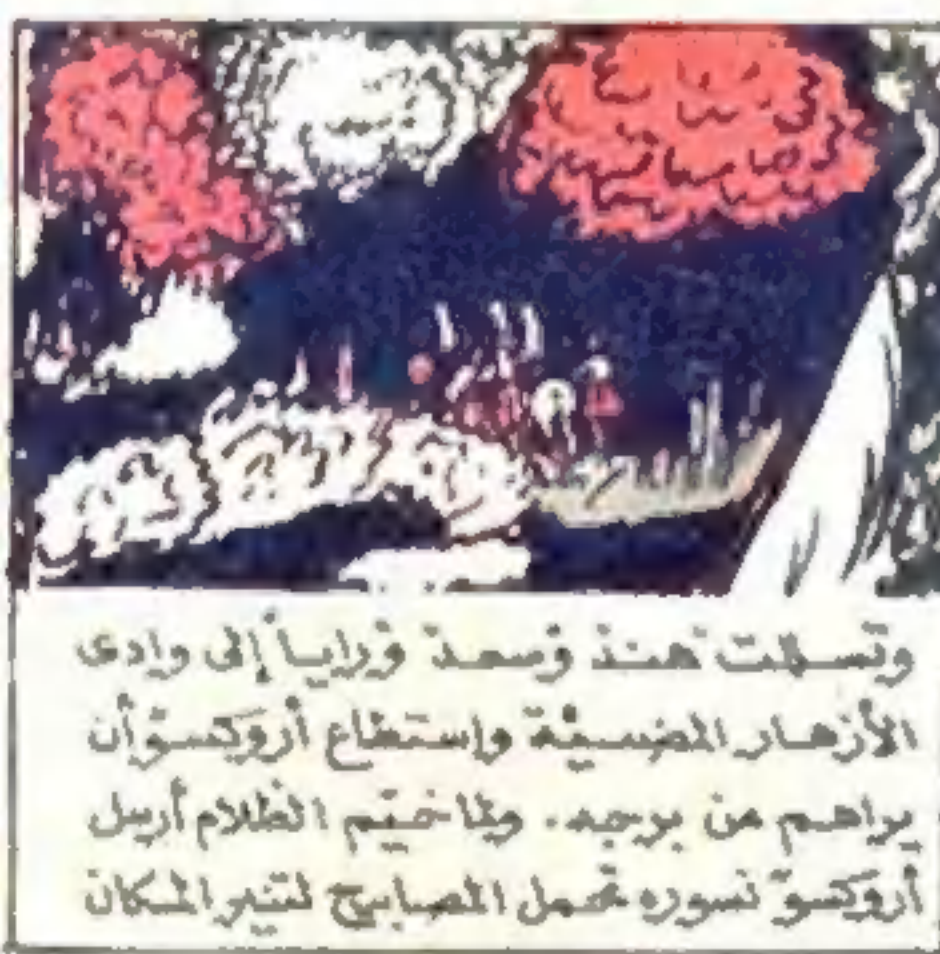 وتسللت هند وسعد ورايا إلى وادى
الأزهار المضيئة واستطاع أروكسو أن
يراهم من برجه. ولما خيّم الظلام أرسل
أروكسو نسوره تحمل المصابيح لتنير المكان